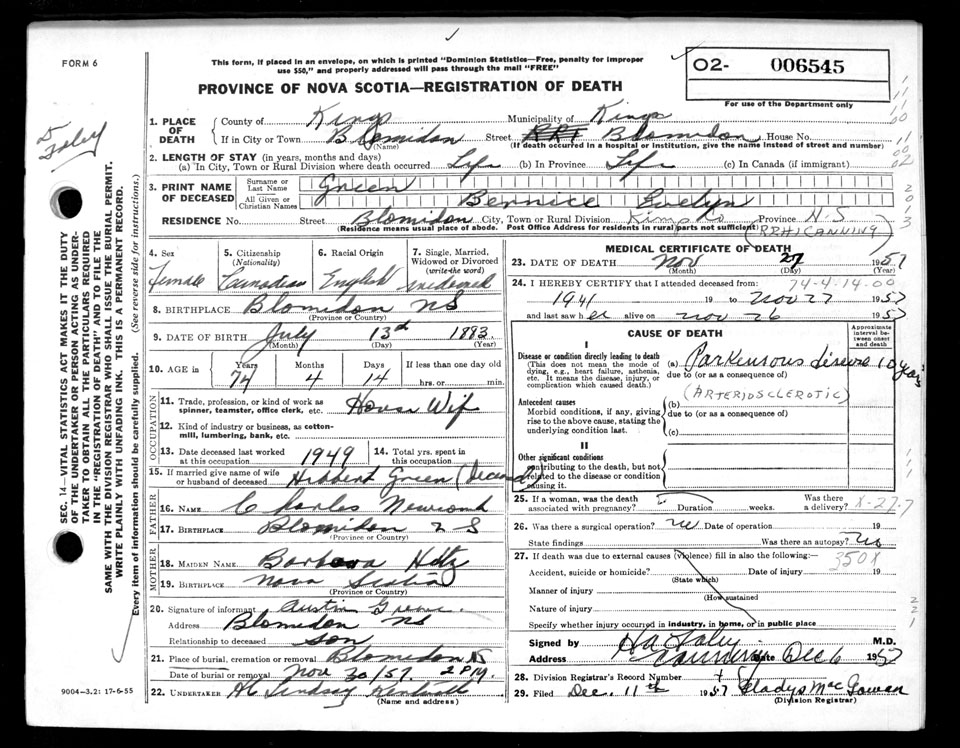 FORM 6
This form, if placed in an envelope, on which is printed "Dominion Statistics—Free, penalty for improper
use $50," and properly addressed will pass through the mail "FREE"
O2- 006545
For use of the Department only
PROVINCE OF NOVA SCOTIA—REGISTRATION OF DEATH
Foley
SEC. 14—VITAL STATISTICS ACT MAKES IT THE DUTY
OF THE UNDERTAKER OR PERSON ACTING AS UNDER-
TAKER TO OBTAIN ALL THE PARTICULARS REQUIRED
IN THE "REGISTRATION OF DEATH" AND TO FILE THE
SAME WITH THE DIVISION REGISTRAR WHO SHALL ISSUE THE BURIAL PERMIT.
WRITE PLAINLY WITH UNFADING INK. THIS IS A PERMANENT RECORD.
Every item of information should be carefully supplied. (See reverse side for instructions.)
1. PLACE OF DEATH
County of Kings Municipality of Kings
If in City or Town Blomidon (Name) Street Blomidon House No.
(If death occurred in a hospital or institution, give the name instead of street and number)
2. LENGTH OF STAY (in years, months and days)
(a) In City, Town or Rural Division where death occurred Life (b) In Province Life (c) In Canada (if immigrant)
3. PRINT NAME OF DECEASED
Surname or Last Name Green
All Given or Christian Names Bernice Evelyn
RESIDENCE No. Street Blomidon City, Town or Rural Division Kings Co Province N-S
(Residence means usual place of abode. Post Office Address for residents in rural parts not sufficient)
(RR#1 CANNING)
4. Sex Female
5. Citizenship (Nationality) Canadian
6. Racial Origin English
7. Single, Married, Widowed or Divorced (write the word) widowed
8. BIRTHPLACE Blomidon NS
(Province or Country)
9. DATE OF BIRTH July 13th 1883
(Month) (Day) (Year)
10. AGE in Years 74 Months 4 Days 14 If less than one day old hrs. or min.
OCCUPATION
11. Trade, profession, or kind of work as spinner, teamster, office clerk, etc. House Wife
12. Kind of industry or business, as cotton-mill, lumbering, bank, etc.
13. Date deceased last worked at this occupation 1949 14. Total yrs. spent in this occupation
15. If married give name of wife or husband of deceased Herbert Green (Deceased)
FATHER
16. NAME Charles Newcomb
17. BIRTHPLACE Blomidon N S
(Province or Country)
MOTHER
18. MAIDEN NAME Barbara
19. BIRTHPLACE Nova Scotia
(Province or Country)
20. Signature of informant Austin Green
Address Blomidon NS
Relationship to deceased son
21. Place of burial, cremation or removal Blomidon NS
Date of burial or removal Nov 30/57 19
22. UNDERTAKER Lindsay
(Name and address)
9004-3.2: 17-6-55
MEDICAL CERTIFICATE OF DEATH
23. DATE OF DEATH Nov 27 1957
(Month) (Day) (Year)
74-4-14-00
24. I HEREBY CERTIFY that I attended deceased from:
1941 19 to Nov 27 1957
and last saw her alive on Nov 26 1957
CAUSE OF DEATH
Approximate interval between onset and death
I
Disease or condition directly leading to death
(This does not mean the mode of dying, e.g., heart failure, asthenia, etc. It means the disease, injury, or complication which caused death.)
(a) Parkinsons disease 10 years
due to (or as a consequence of)
Antecedent causes
Morbid conditions, if any, giving rise to the above cause, stating the underlying condition last.
(b) (ARTERIOSCLEROTIC)
due to (or as a consequence of)
(c)
II
Other significant conditions
contributing to the death, but not related to the disease or condition causing it.
25. If a woman, was the death associated with pregnancy? Duration weeks. Was there a delivery?
X-27.7
26. Was there a surgical operation? no Date of operation 19
State findings Was there an autopsy? No
27. If death was due to external causes (violence) fill in also the following:
350X
Accident, suicide or homicide? Date of injury 19
(State which)
Manner of injury
(How sustained
Nature of injury
Specify whether injury occurred in industry, in home, or in public place
Signed by Foley M.D.
Address Canning Date Dec 6 1957
28. Division Registrar's Record Number
29. Filed Dec. 11th 1957 Gladys MacGowan
(Division Registrar)